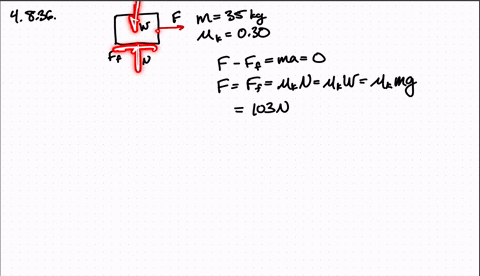 4.8.36.
W
F
F_f
N
m = 35 kg
μ_k = 0.30
F - F_f = ma = 0
F = F_f = μ_k N = μ_k W = μ_k mg
= 103 N